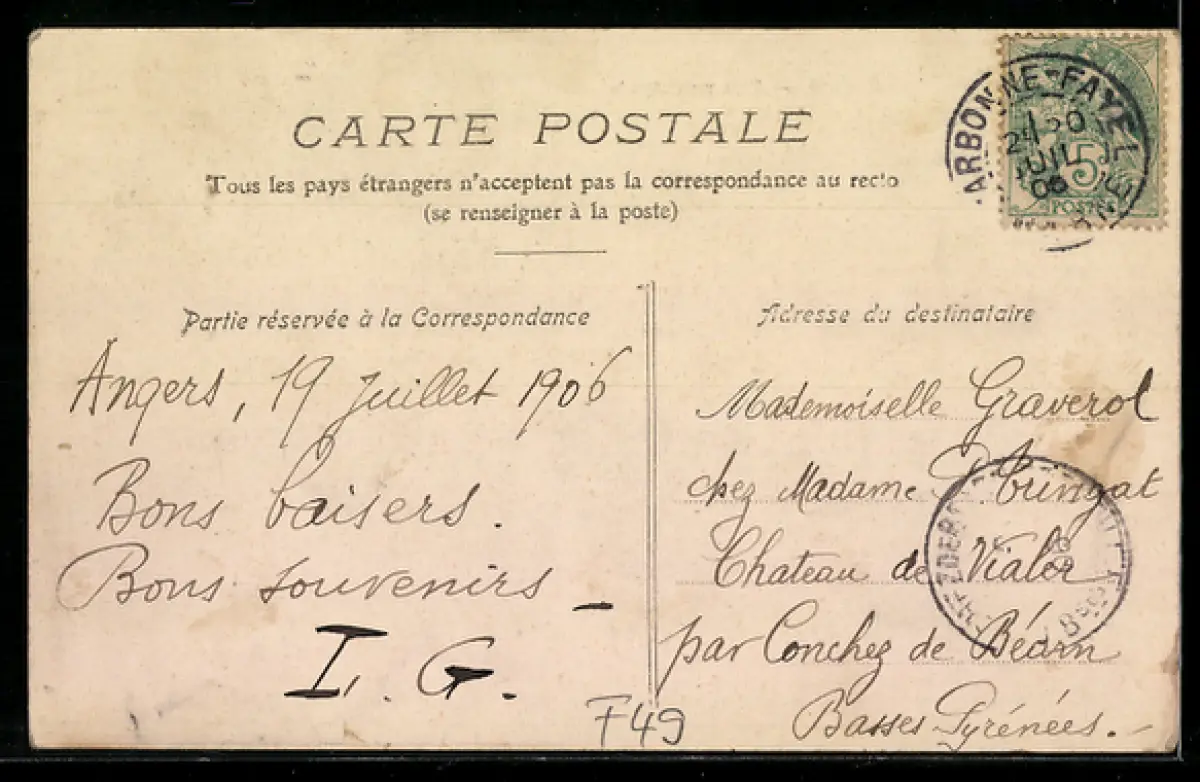 CARTE POSTALE
Tous les pays étrangers n'acceptent pas la correspondance au recto
(se renseigner à la poste)
ARBONNE-FAYEL
JUIL
06
5
POSTES
Partie réservée à la Correspondance
Angers, 19 Juillet 1906
Bons baisers.
Bons souvenirs _
I. G.
F49
Adresse du destinataire
Mademoiselle Graverol
chez Madame
Chateau de Vialer
par Conchez de Béarn
Basses Pyrénées.-